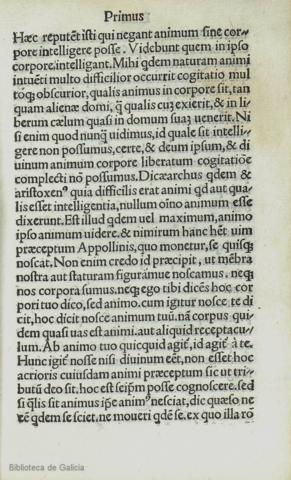 Primus
Hæc reputẽt isti qui negant animum sine cor-
pore intelligere posse. Videbunt quem in ipso
corpore, intelligant. Mihi qdem naturam animi
intuẽti multo difficilior occurrit cogitatio mul
toq; obscurior, qualis animus in corpore sit, tan
quam alienæ domi, q̃ qualis cũ exierit, & in li
berum cælum quasi in domum suaʒ uenerit. Ni
si enim quod nunq̃ uidimus, id quale sit intelli-
gere non possumus, certe, & deum ipsum, & di
uinum animum corpore liberatum cogitatiõe
complecti nõ possumus. Dicæarchus qdem &
aristoxenꝰ quia difficilis erat animi qd aut qua-
lis esset intelligentia, nullum oĩno animum esse
dixerunt. Est illud qdem uel maximum, animo
ipso animum uidere. & nimirum hanc hẽt uim
præceptum Appollinis, quo monetur, se quisq;
noscat. Non enim credo id præcipit, ut mẽbra
nostra aut staturam figuramue noscamus. neq;
nos corpora sumus. neq; ego tibi dicẽs hoc cor
pori tuo dico, sed animo. cum igitur nosce te di
cit, hoc dicit nosce animum tuũ. nã corpus qui
dem quasi uas est animi. aut aliquid receptacu-
lum. Ab animo tuo quicquid agiť, id agiť à te.
Hunc igiť nosse nisi diuinum eẽt, non esset hoc
acrioris cuiusdam animi præceptum sic ut tri-
butũ deo sit. hoc est seip̃m posse cognoscere. sed
si q̃lis sit animus ip̃e animꝰ nesciat, dic quæso ne
qdem se sciet, ne moueri qdẽ se. ex quo illa
Biblioteca de Galicia